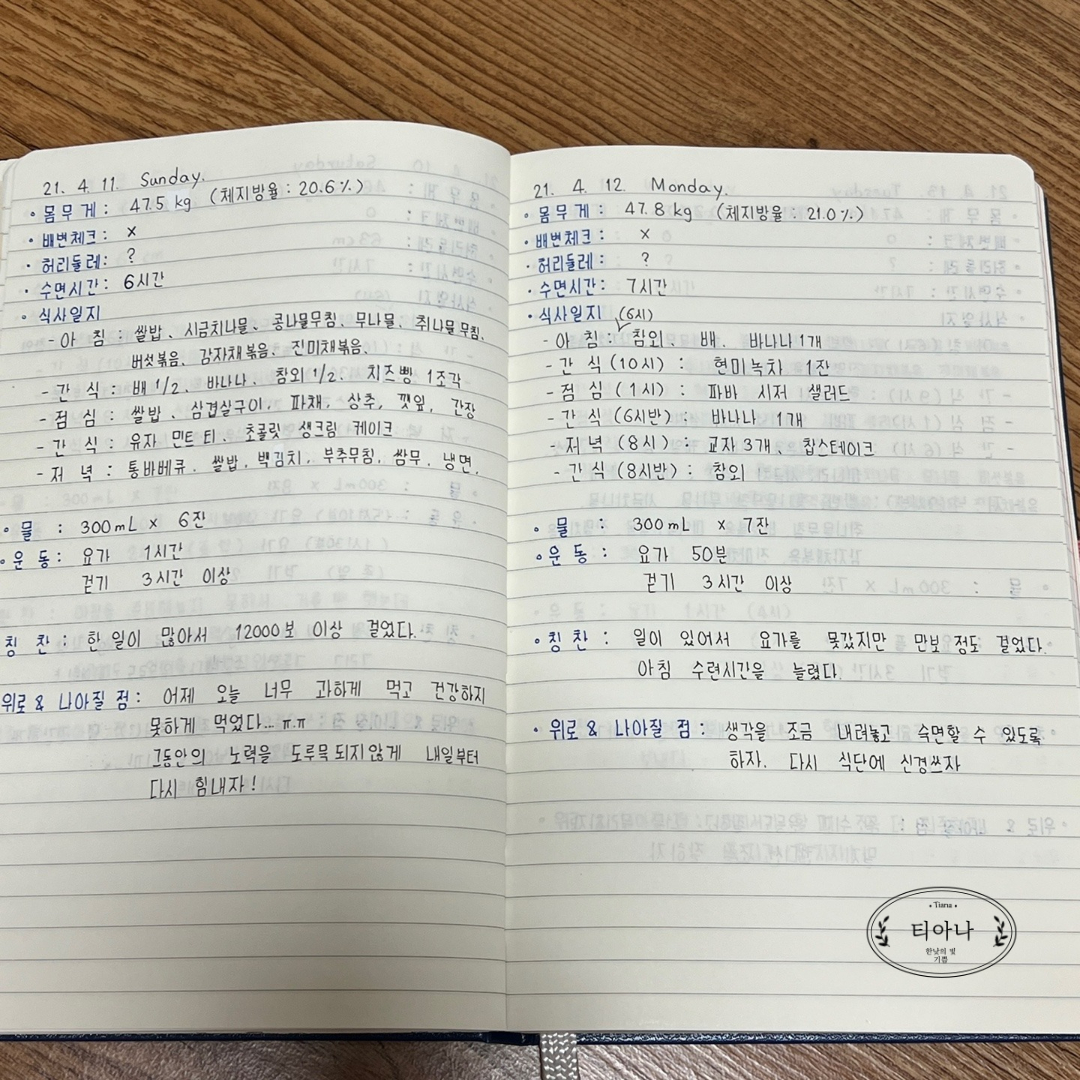 21. 4. 11. Sunday.
• 몸무게 : 47.5 kg (체지방율 : 20.6%)
• 배변체크 : x
• 허리둘레 : ?
• 수면시간 : 6시간
• 식사일지
- 아 침 : 쌀밥, 시금치나물, 콩나물무침, 무나물, 취나물무침,
버섯볶음, 감자채볶음, 진미채볶음,
- 간 식 : 배 1/2, 바나나, 참외 1/2, 치즈빵 1조각
- 점 심 : 쌀밥, 삼겹살구이, 파채, 상추, 깻잎, 간장
- 간 식 : 유자 민트 티, 초콜릿 생크림 케이크
- 저 녁 : 통바베큐, 쌀밥, 백김치, 부추무침, 쌈무, 냉면,
• 물 : 300mL x 6잔
• 운 동 : 요가 1시간
걷기 3시간 이상
칭 찬 : 한 일이 많아서 12000보 이상 걸었다.
위로 & 나아질 점 : 어제 오늘 너무 과하게 먹고 건강하지
못하게 먹었다... ㅠ.ㅠ
그동안의 노력을 도루묵되지않게 내일부터
다시 힘내자!
21. 4. 12. Monday.
• 몸무게 : 47.8 kg (체지방율 : 21.0%)
• 배변체크 : x
• 허리둘레 : ?
• 수면시간 : 7시간
• 식사일지 (6시)
- 아 침 : 참외 배, 바나나 1개
- 간 식 (10시) : 현미녹차 1잔
- 점 심 (1시) : 파바 시저 샐러드
- 간 식 (6시반) : 바나나 1개
- 저 녁 (8시) : 교자 3개, 찹스테이크
- 간 식 (8시반) : 참외
• 물 : 300mL x 7잔
• 운 동 : 요가 50분
걷기 3시간 이상
• 칭 찬 : 일이 있어서 요가를 못갔지만 만보 정도 걸었다.
아침 수련시간을 늘렸다.
• 위로 & 나아질 점 : 생각을 조금 내려놓고 숙면할 수 있도록
하자. 다시 식단에 신경쓰자
• Tiana •
티아나
한낮의 빛
기쁨